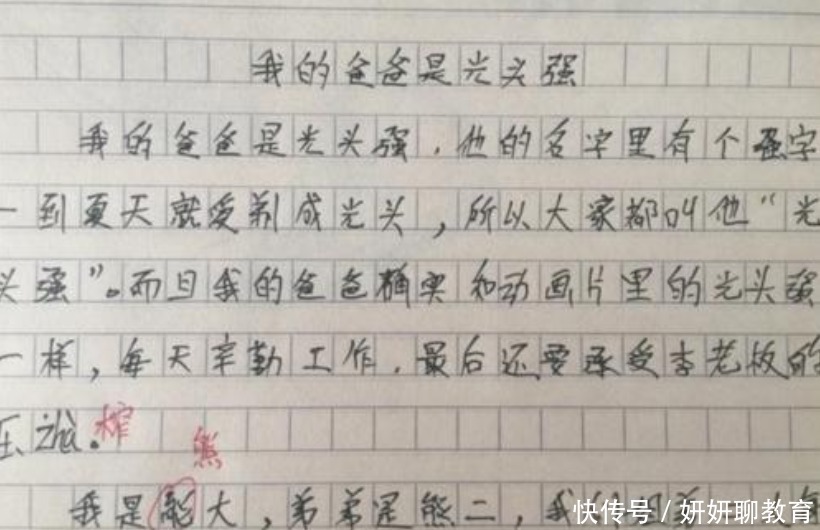 我的爸爸是光头强
我的爸爸是光头强，他的名字里有个强字
一到夏天就爱剃成光头，所以大家都叫他“光
头强”。而且我的爸爸确实和动画片里的光头强
一样，每天辛勤工作，最后还要承受李老板的
压zhà。榨
熊
我是大，弟弟是熊二，我
快传号／妍妍聊教育